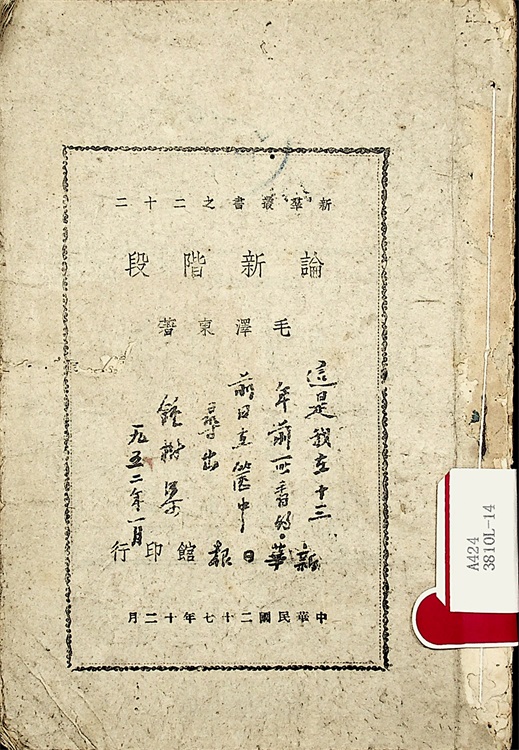 新羣叢書之二十二
論新階段
毛澤東著
這是我在十三
年前所看的.
前日在篋中
尋出
鍾樹梁
一九五二年一月
新華日報館印行
中華民國二十七年十二月
A424
3810L-14